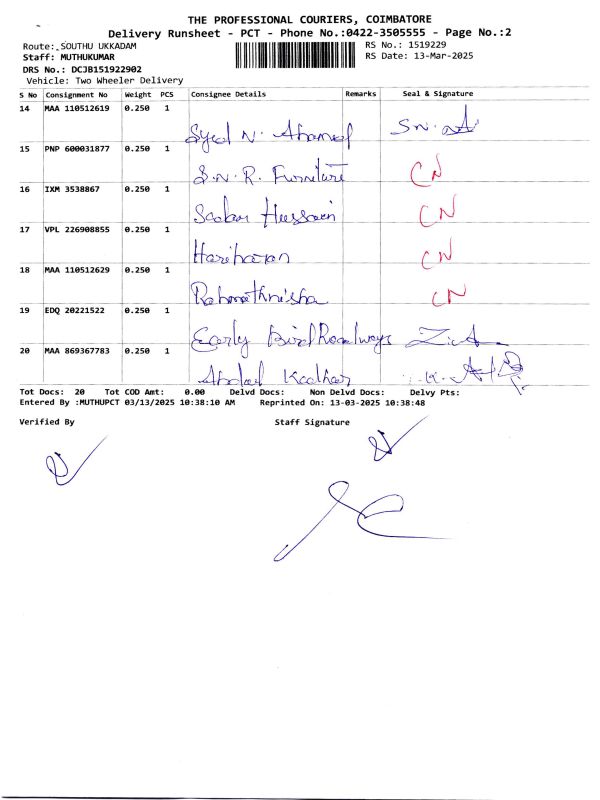 THE PROFESSIONAL COURIERS, COIMBATORE
Delivery Runsheet - PCT - Phone No.:0422-3505555 - Page No.:2
Route: SOUTHU UKKADAM RS No.: 1519229
Staff: MUTHUKUMAR RS Date: 13-Mar-2025
DRS No.: DCJB151922902
Vehicle: Two Wheeler Delivery
S No Consignment No Weight PCS Consignee Details Remarks Seal & Signature
14 MAA 110512619 0.250 1
Syed N. Ahamed
15 PNP 600031877 0.250 1
S.N.R. Furniture CN
16 IXM 3538867 0.250 1
Hussain CN
17 VPL 226908855 0.250 1
Hariharan CN
18 MAA 110512629 0.250 1
Rahmathnisha CN
19 EDQ 20221522 0.250 1
Early Bird Roadways
20 MAA 869367783 0.250 1
Abdul Kadhar
Tot Docs: 20 Tot COD Amt: 0.00 Delvd Docs: Non Delvd Docs: Delvy Pts:
Entered By :MUTHUPCT 03/13/2025 10:38:10 AM Reprinted On: 13-03-2025 10:38:48
Verified By Staff Signature